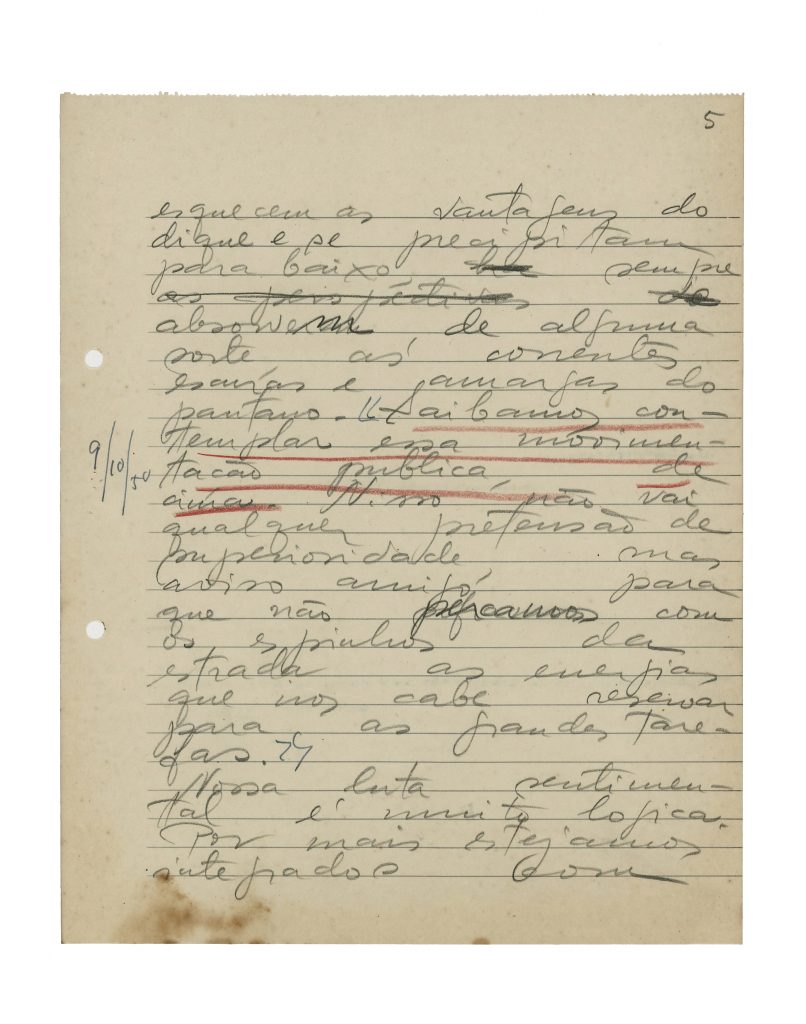 5
esquecem as vantagens do
dique e se precipitam
para baixo, sempre
as perspectivas de
absorvem de alguma
sorte as correntes
escurías e amargas do
pantano. "Saibamos con-
templar essa movimen-
9/10/50
tação publica, de
cima. Nisso não vai
qualquer pretensão de
superioridade mas
aviso amigo, para
que não percamos com
os espinhos da
estrada as energias
que nos cabe reservar
para as grandes tare-
fas."
Nossa luta sentimen-
tal é muito logica.
Por mais estejamos
integrados com